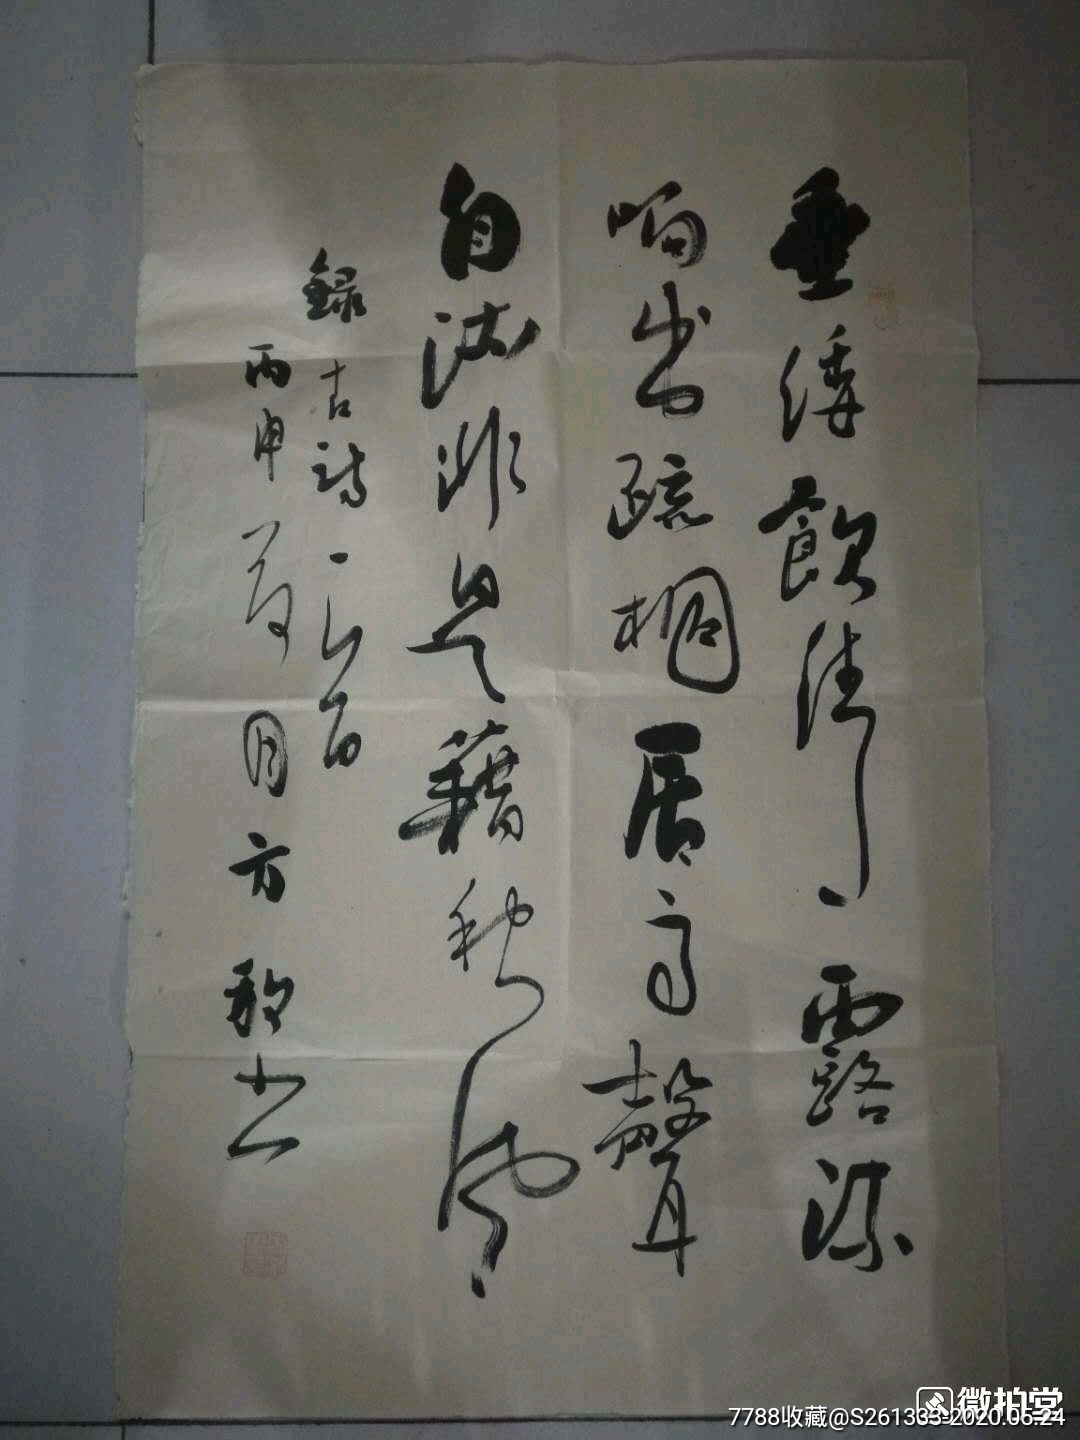 垂緌飲清露流
响出疏桐居高聲
自遠非是藉秋風
錄古詩一首
丙申夏月方书
微拍堂
7788收藏@S261333-2020.05.24